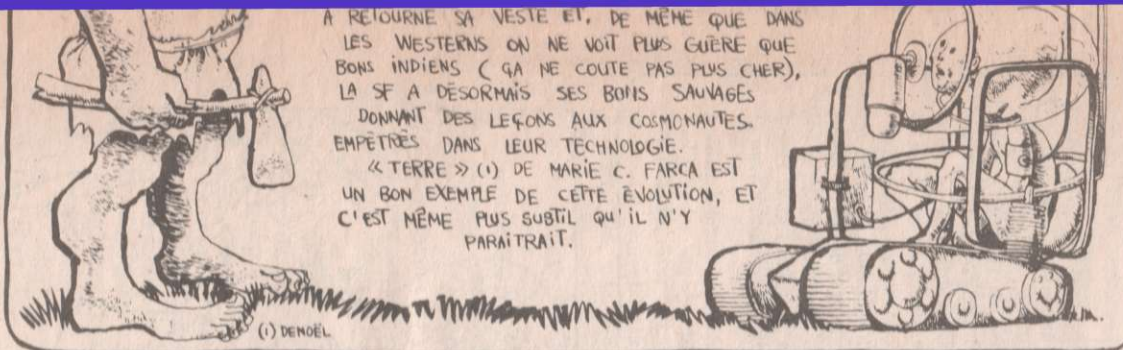 A RETOURNE SA VESTE ET, DE MÊME QUE DANS
LES WESTERNS ON NE VOIT PLUS GUÈRE QUE
BONS INDIENS (ÇA NE COUTE PAS PLUS CHER),
LA SF A DÉSORMAIS SES BONS SAUVAGES
DONNANT DES LEÇONS AUX COSMONAUTES
EMPÊTRÉS DANS LEUR TECHNOLOGIE.
« TERRE » (1) DE MARIE C. FARCA EST
UN BON EXEMPLE DE CETTE ÉVOLUTION, ET
C'EST MÊME PLUS SUBTIL QU'IL N'Y
PARAITRAIT.
(1) DENOËL